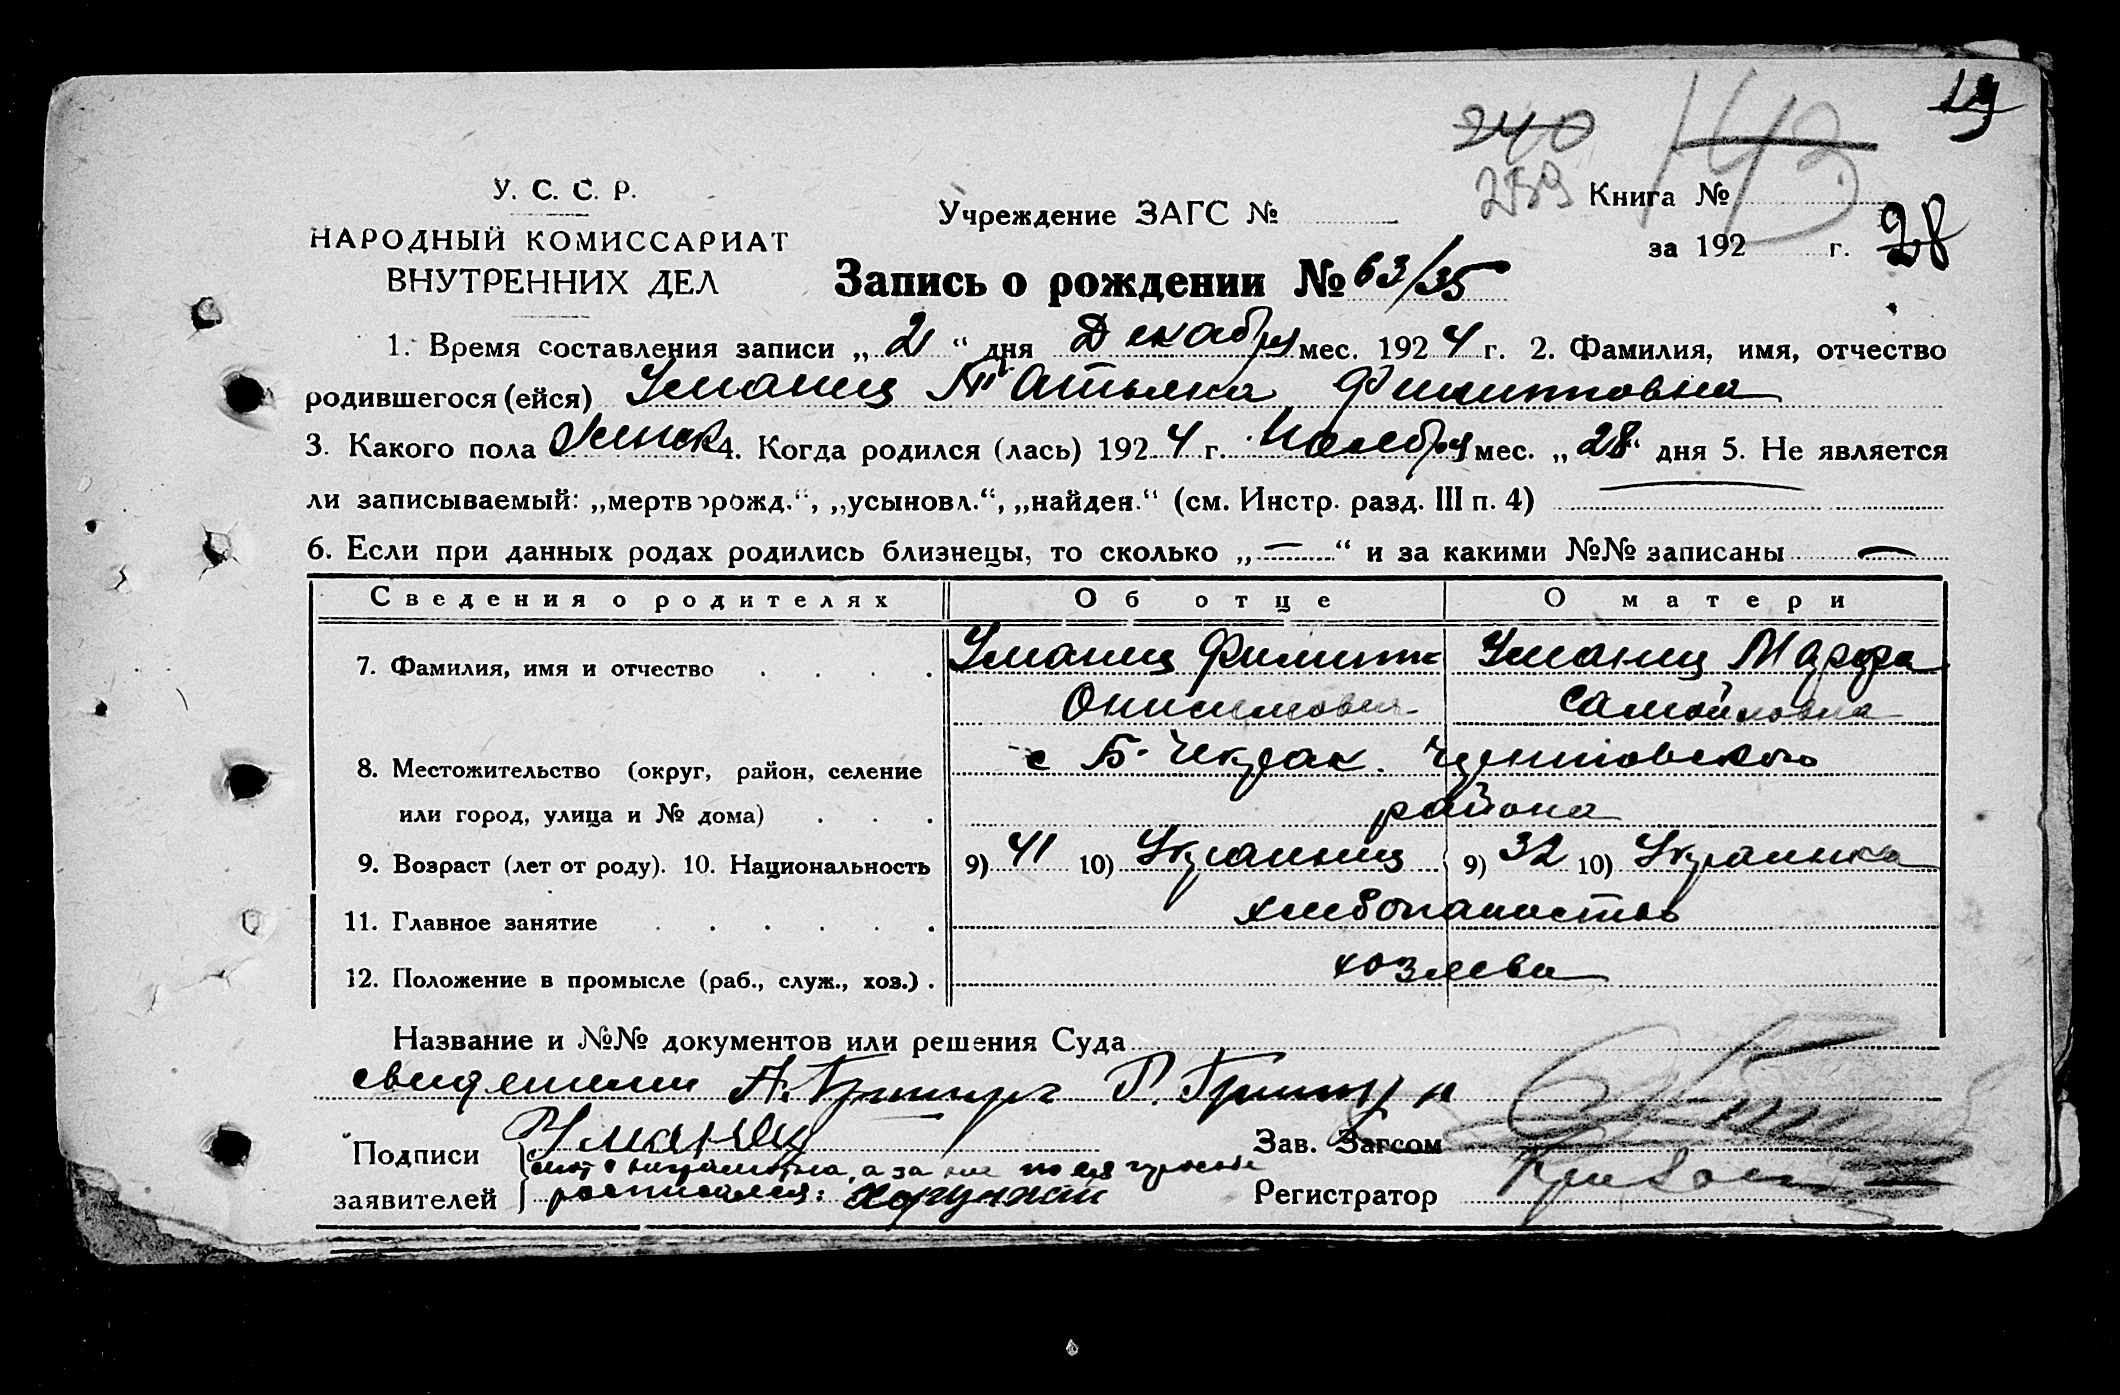 19
240
143
259 Книга №
У. С. С. Р.
Учреждение ЗАГС №
28
НАРОДНЫЙ КОМИССАРИАТ
за 192 г.
ВНУТРЕННИХ ДЕЛ
Запись о рождении № 63/35
1. Время составления записи „ 21 “ дня Декабря мес. 1924 г. 2. Фамилия, имя, отчество
родившегося (ейся) Уманец Татьяна Филипповна
3. Какого пола женск 4. Когда родился (лась) 1924 г. Ноября мес. „28“ дня 5. Не является
ли записываемый: „мертворожд.“, „усыновл.“, „найден.“ (см. Инстр. разд. III п. 4) —
6. Если при данных родах родились близнецы, то сколько „—“ и за какими №№ записаны —
Сведения о родителях Об отце О матери
7. Фамилия, имя и отчество Уманец Филипп Уманец Марфа
Онисимович Самойловна
8. Местожительство (округ, район, селение с Б. Чекрак.
или город, улица и № дома) района
9. Возраст (лет от роду). 10. Национальность 9) 41 10) Украинец 9) 32 10) Украинка
11. Главное занятие хлебопашество
12. Положение в промысле (раб., служ., хоз.) хозяева
Название и №№ документов или решения Суда
свидетели А. Г.
Подписи Уманец Зав. Загсом
неграмотна, а за нее по ея просьбе
заявителей росписался: Регистратор